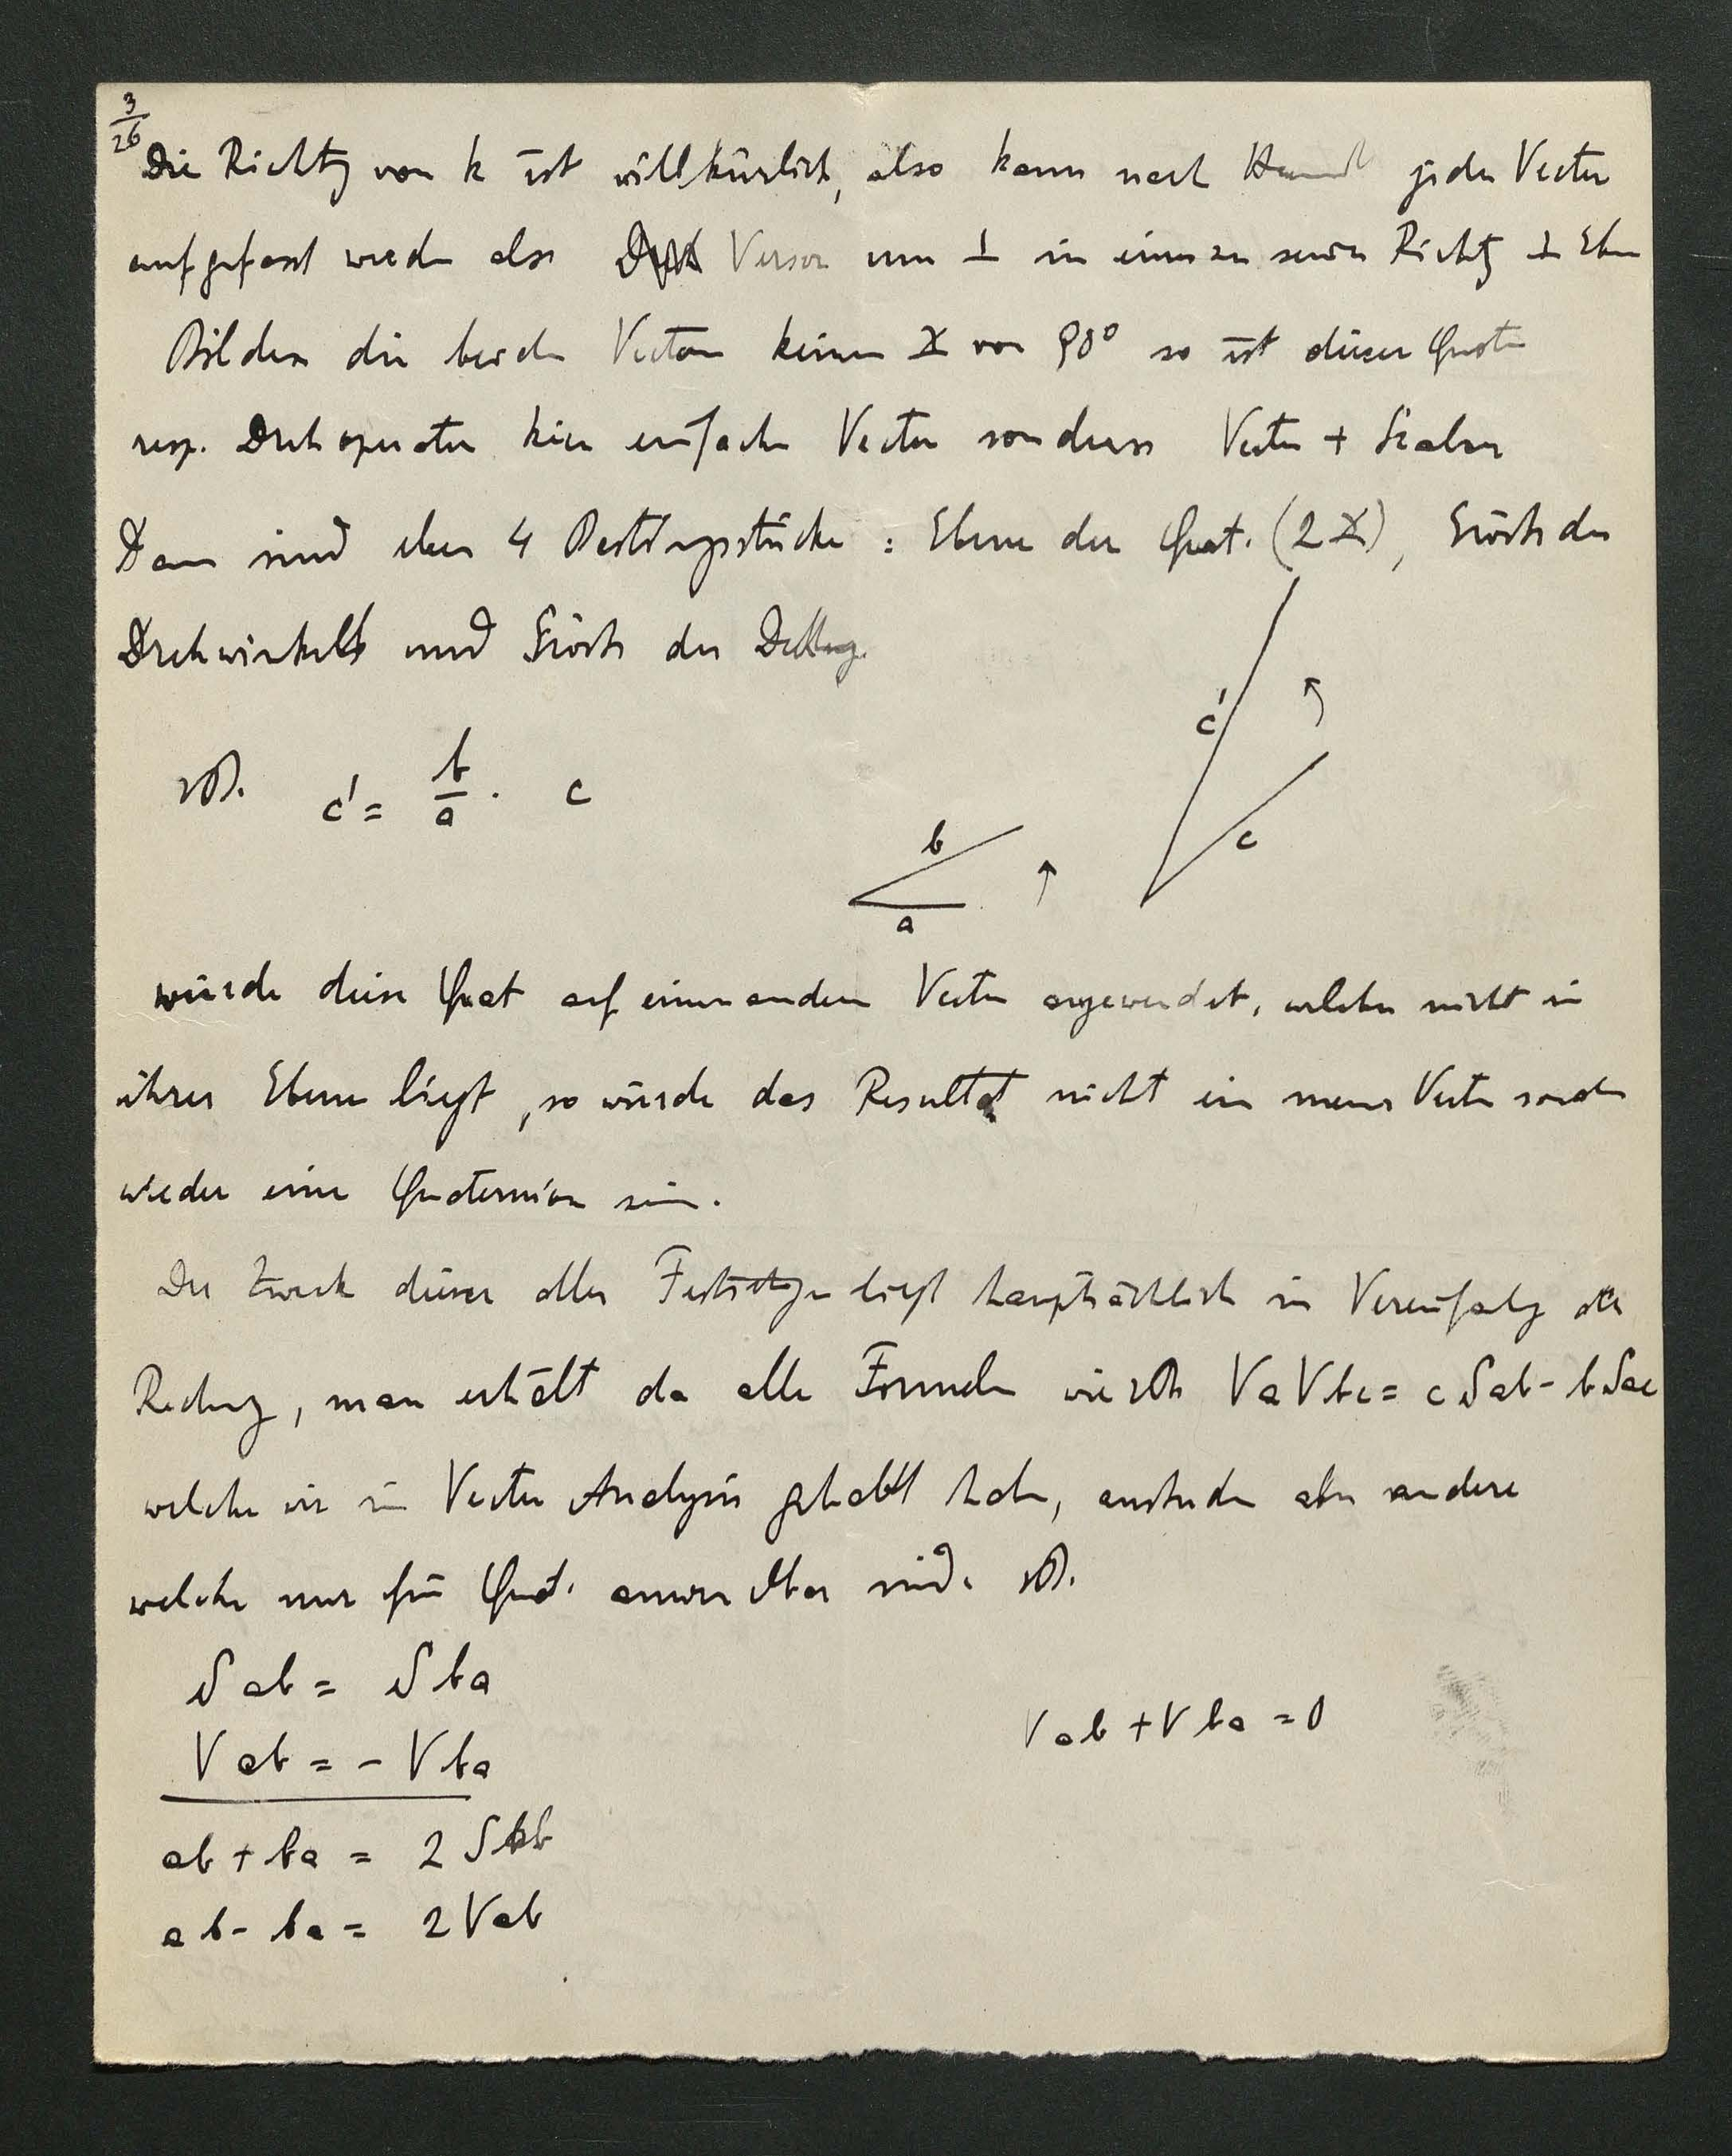 3/26
Die Richtg von k ist willkürlich, also kann nach jeder Vector
aufgefasst werden als Versor um ⊥ in einer zu seiner Richtg ⊥ Eben
Bilden die beiden Vectoren keinen ∡ von 90° so ist dieser Quot
resp. Drehoperator kein einfacher Vector sondern Vector + Scalar
Dann sind eben 4 Bestimgsstücke : Ebene der Quat. (2∡), Grösse des
Drehwinkels und Grösse der
c'
zB. c' = b/a . c
c
b
a
würde diese Quat auf einen anderen Vector angewendet, welcher nicht in
ihrer Ebene liegt, so würde das Resultat nicht ein neuer Vector sondern
wieder eine Quaternion sein.
Der Zweck dieser aller liegt hauptsächlich in Vereinfachg der
Rechng, man erhält da alle Formeln wie zB VaVbc = cSab - bSac
welche wir in Vector Analysis gehabt haben, ausserdem aber andere
welche nur für Quat. anwendbar sind. zB.
Sab = Sba
Vab = - Vba
Vab + Vba = 0
ab + ba = 2 Sab
ab - ba = 2 Vab